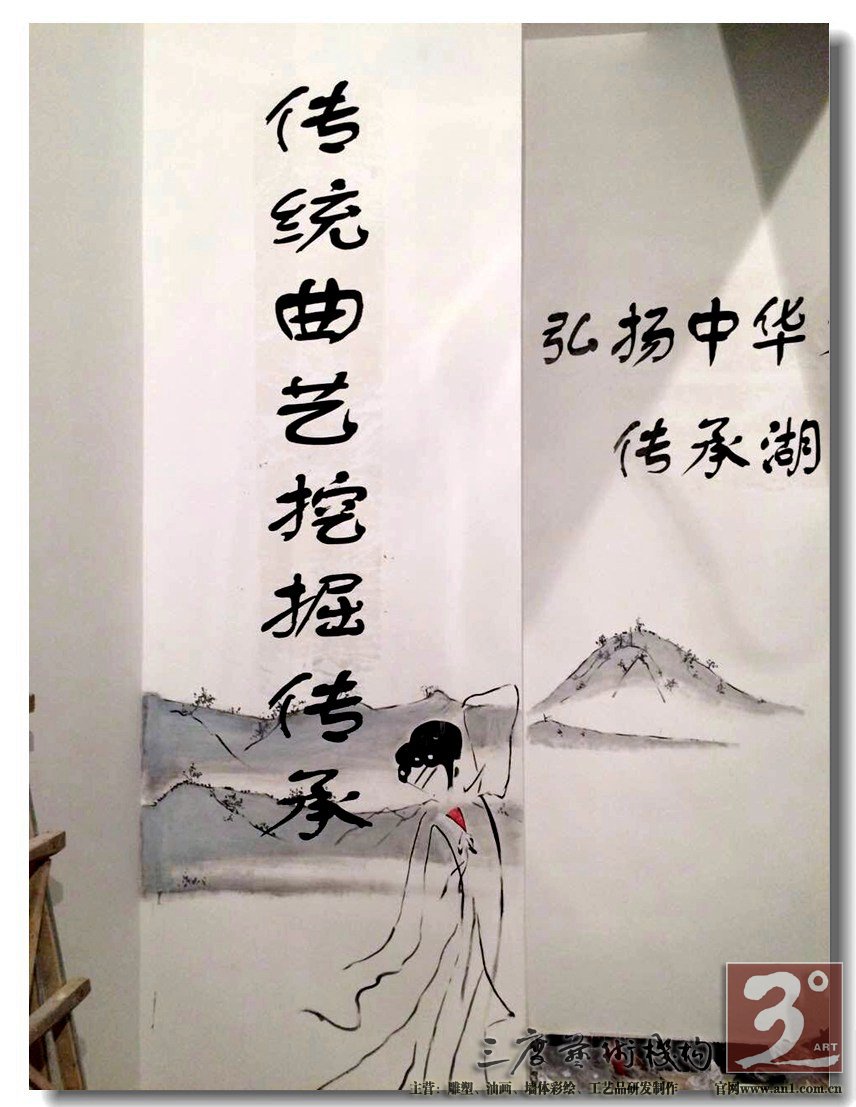 传统曲艺挖掘传承
弘扬中华
传承湖
3°
ART
三度藝術機构
主营：雕塑、油画、墙体彩绘、工艺品研发制作 官网www.an1.com.cn